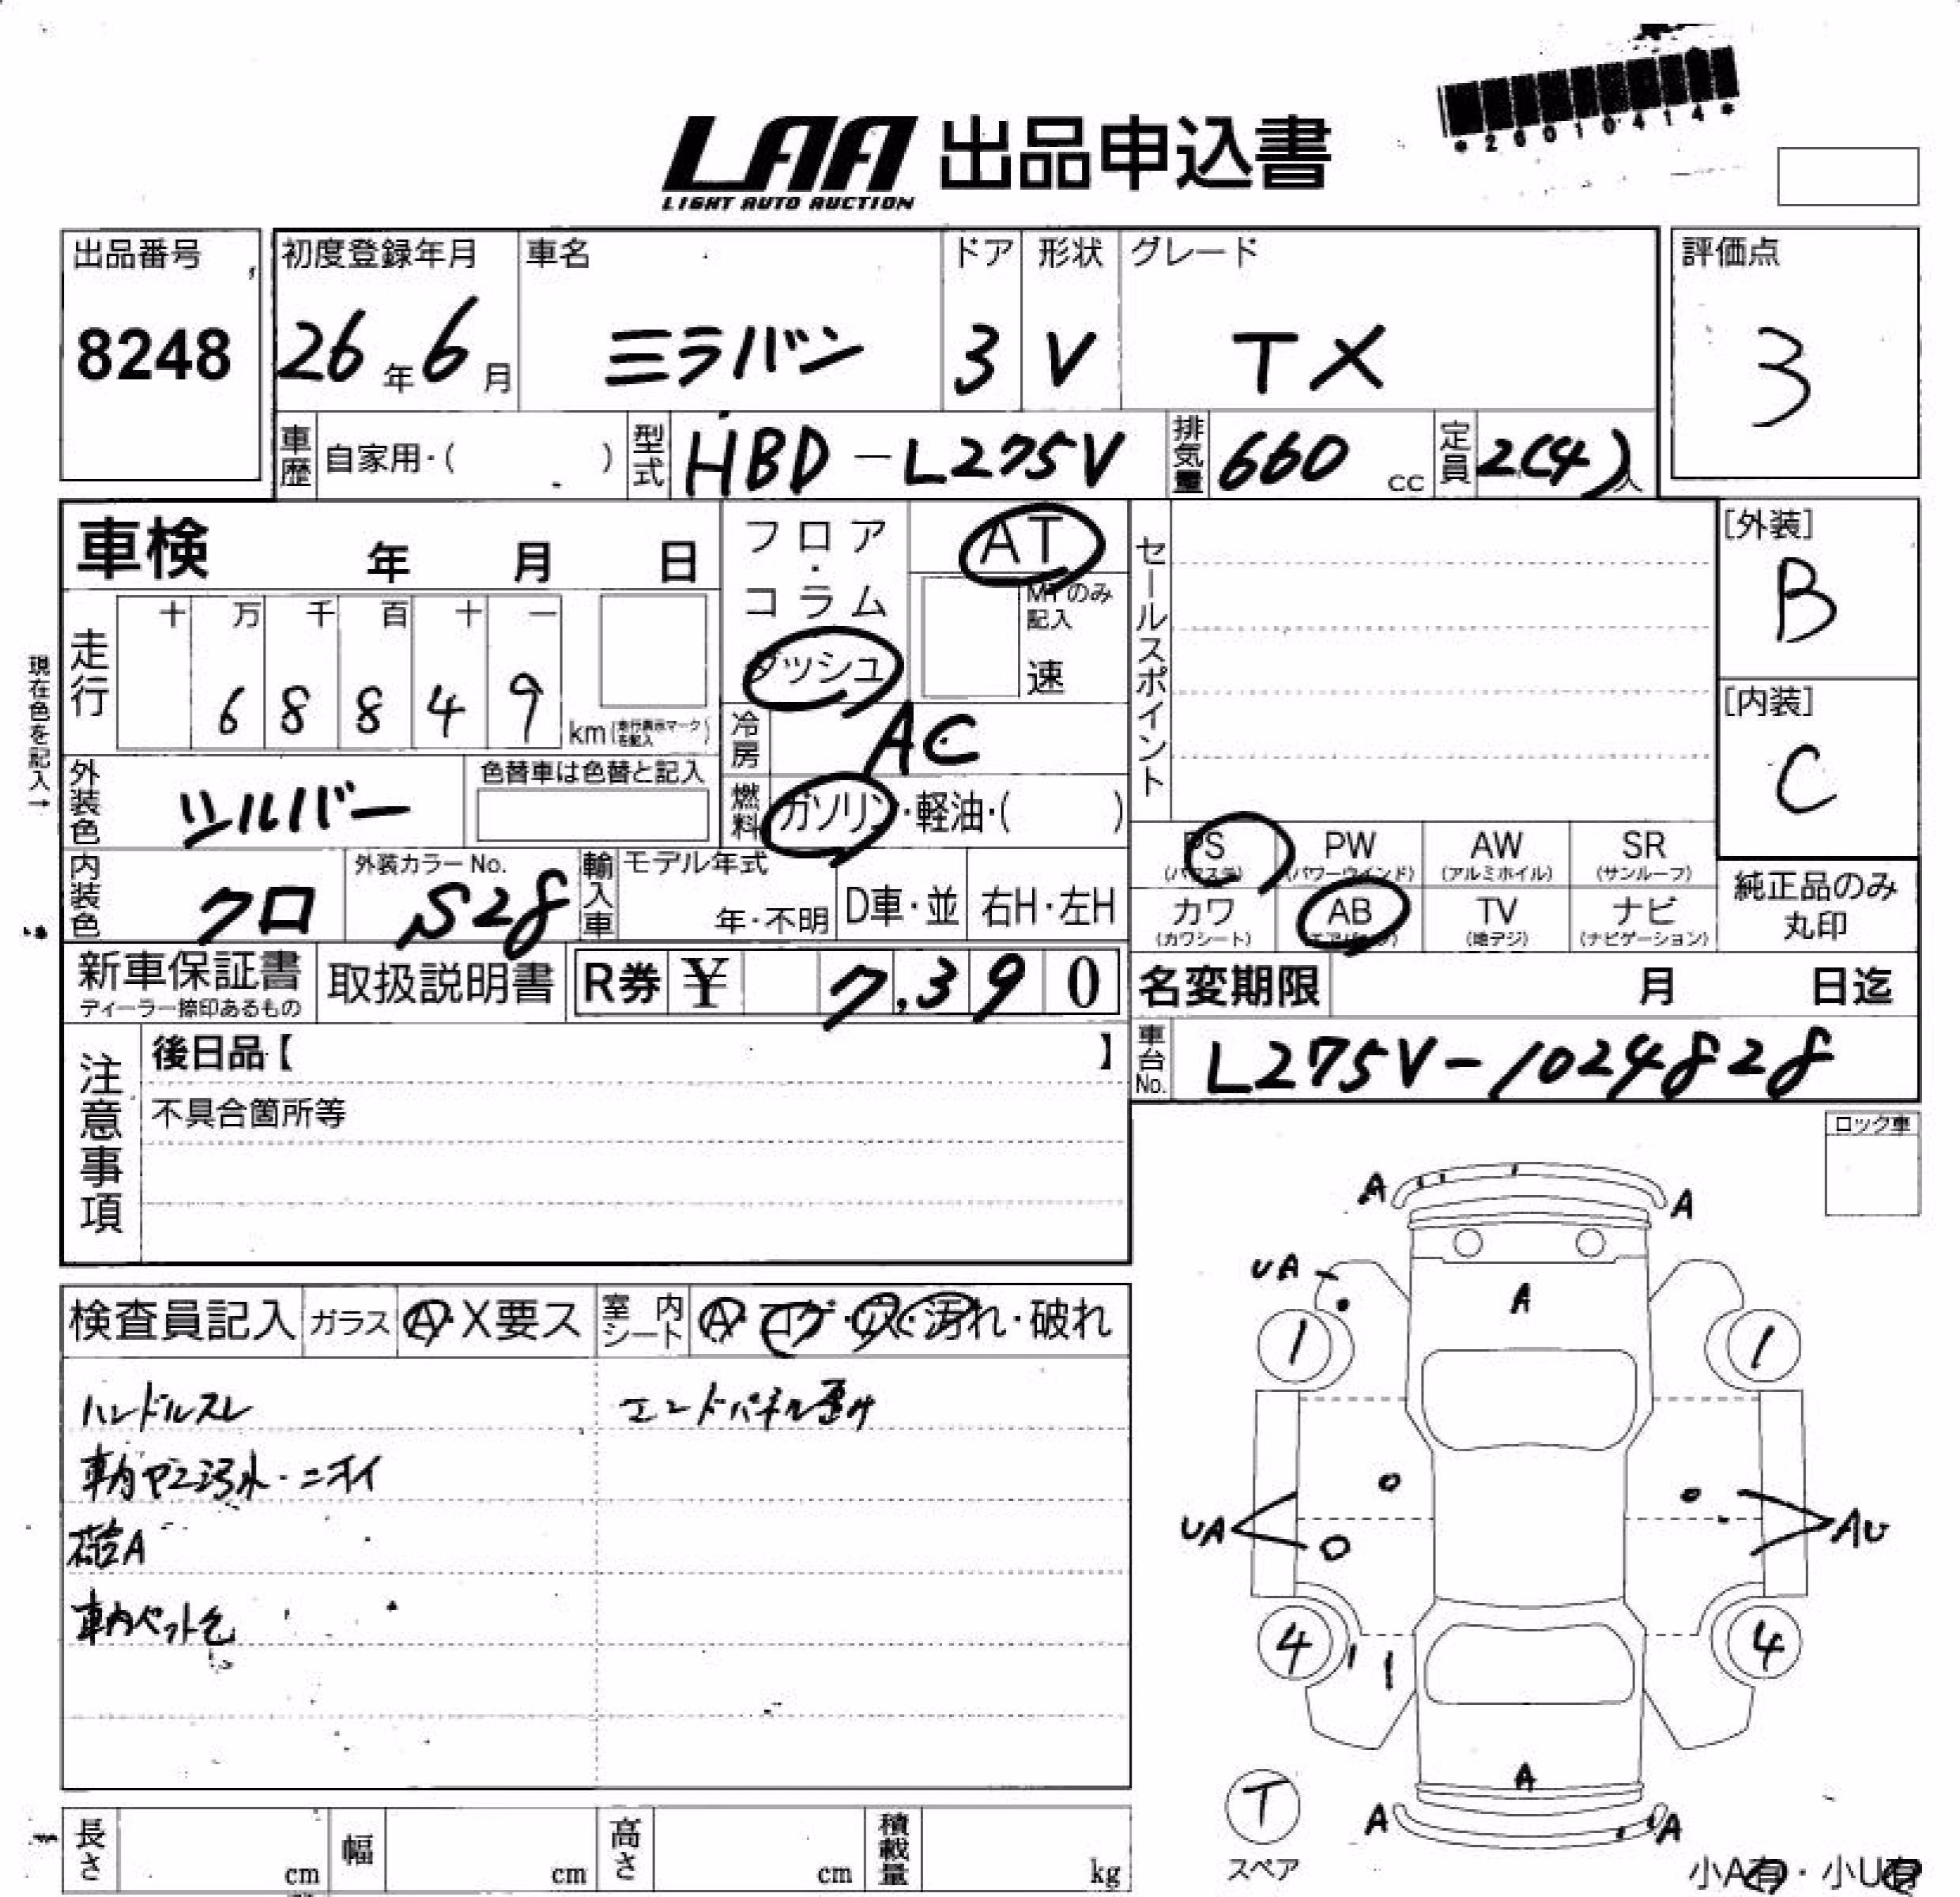 *26010414*
LAA 出品申込書
LIGHT AUTO AUCTION
出品番号 初度登録年月 車名 ドア 形状 グレード 評価点
8248 26年6月 ミラバン 3 V TX 3
車歴 自家用・( ) 型式 HBD-L275V 排気量 660 cc 定員 2(4)人
車検 年 月 日 フロア・コラム AT セールスポイント [外装]
ダッシュ MTのみ記入 速 B
走行 十 万 千 百 十 一
6 8 8 4 9 km(走行表示マークを記入)
現在色を記入→
冷房 AC [内装]
C
外装色 シルバー 色替車は色替と記入 燃料 ガソリン・軽油・( )
PS PW AW SR
(パワステ) (パワーウインド) (アルミホイル) (サンルーフ)
内装色 クロ 外装カラーNo. S28 輸入車 モデル年式 年・不明 D車・並 右H・左H
カワ AB TV ナビ 純正品のみ
(カワシート) (エアバッグ) (地デジ) (ナビゲーション) 丸印
新車保証書 取扱説明書 R券 ¥ 7,390 名変期限 月 日迄
ディーラー捺印あるもの
注意事項 後日品【 】 車台No. L275V-1024828
不具合箇所等
ロック車
検査員記入 ガラス A・X要ス 室内シート A・コゲ・穴・汚れ・破れ
ハンドルスレ エンドパネル歪み
車内ヤニ汚れ・ニオイ
荷台A
車内ペット毛
A A
UA A
1 1
UA AU
4 4
A
A A
T
スペア
小A有・小U有
長さ cm 幅 cm 高さ cm 積載量 kg